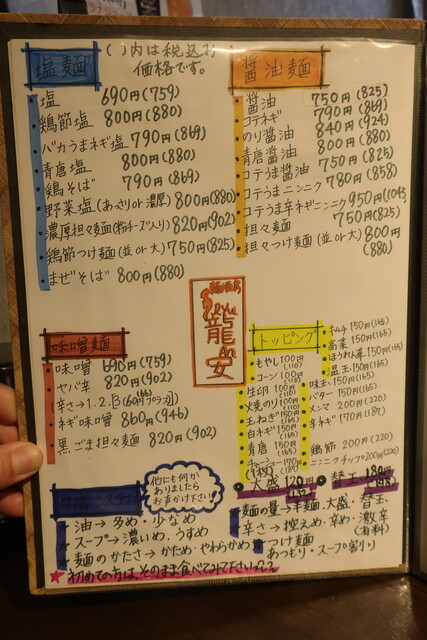 ( )内は税込み
価格です。
塩麺
塩 690円(759)
鶏節塩 800円(880)
バカうまネギ塩 790円(869)
青唐塩 800円(880)
鶏そば 790円(869)
野菜塩(あっさりor濃厚) 800円(880)
濃厚担々麺(粉チーズ入り) 820円(902)
鶏節つけ麺(並or大) 750円(825)
まぜそば 800円(880)
醤油麺
醤油 750円(825)
コテネギ 790円(869)
のり醤油 840円(924)
青唐醤油 800円(880)
コテうま醤油 750円(825)
コテうまニンニク 780円(858)
コテうま辛ネギニンニク 950円(1045)
担々麺 750円(825)
担々つけ麺(並or大) 800円
(880)
龍安
味噌麺
味噌 690円(759)
ヤバ辛 820円(902)
(辛さ→1.2.[3(60円プラス)])
(66)
ネギ味噌 860円(946)
黒ごま担々麺 820円(902)
トッピング
もやし 100円
(110)
コーン 100円
(110)
生卵 100円
(110)
焼のり 100円
(110)
玉ねぎ 150円
(165)
白ネギ 150円
(165)
青唐 150円
(165)
チャーシュー 170円
(187)
キムチ 150円(165)
高菜 150円(165)
ほうれん草 150円(165)
温玉 150円(165)
味玉 150円(165)
バター 150円(165)
メンマ 200円(220)
辛ネギ 170円(187)
鶏節 200円(220)
ニンニクチップ 200円(220)
大盛 120円
(132)
替玉 180円
(198)
他にも何か
ありましたら
お声かけ下さい!
油→多め・少なめ
スープ→濃いめ、うすめ
麺のかたさ→かため・やわらかめ
麺の量→半麺・大盛・替玉
辛さ→控えめ・辛め・激辛
(有料)
つけ麺
あつもり・スープ割り
★初めての方は、そのまま食べてみて下さい